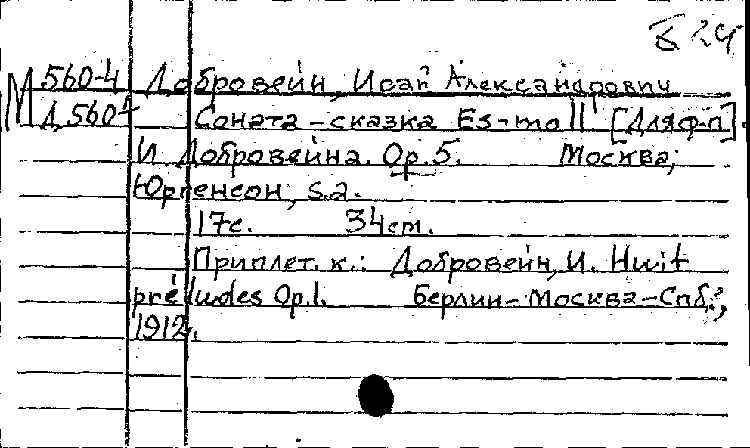 Б 24
М 560-4 Добровейн, Исай Александрович
Д 560 Соната-сказка Es-moll [Для ф-п].
И Добровейна. Op.5. Москва,
Юргенсон, s.a.
17с. 34cm.
Приплет. к.: Добровейн, И. Huit
préludes Op.1. Берлин-Москва-Спб.,
1912.